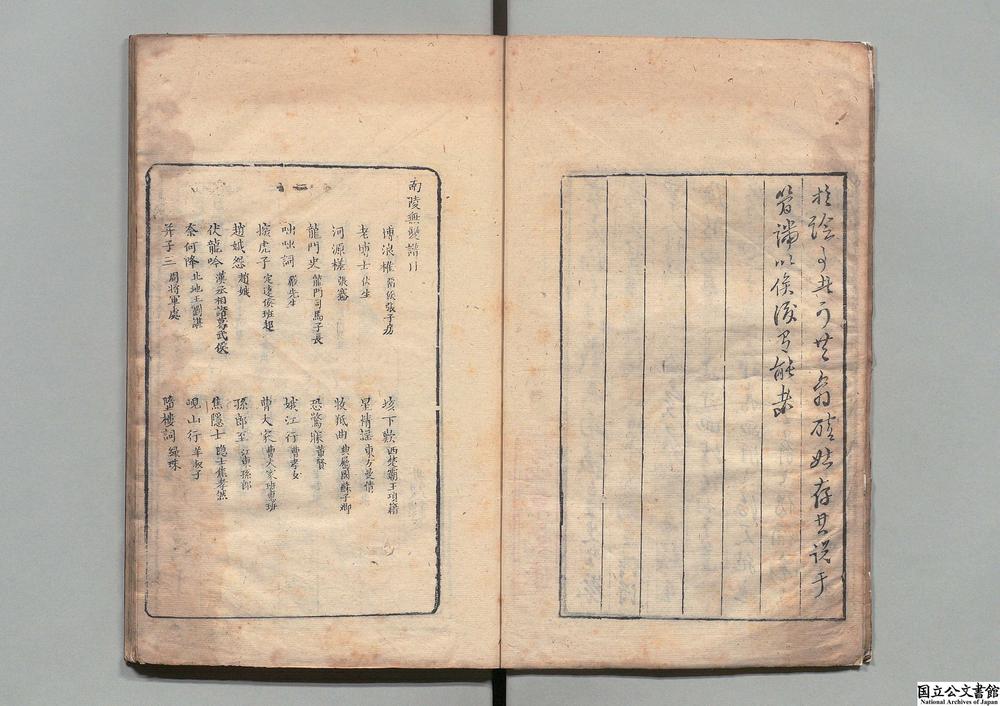 於論
皆識以俟後有能者
南陵無雙譜目
博浪椎 留侯張子房
垓下歎 西楚霸王項籍
老博士 伏生
星精謡 東方曼倩
河源槎 張騫
牧羝曲 典屬國蘇子卿
龍門史 龍門司馬子長
恐驚寐 董賢
咄咄詞 嚴先生
娥江行 曹孝女
探虎子 定遠侯班超
曹大家 曹大家班惠班
趙娥怨 趙娥
孫郎至 江東孫郎
伏龍吟 漢丞相諸葛武侯
焦隱士 隐士焦孝然
奈何降 北地王劉諶
峴山行 羊叔子
并子三 周將軍處
墮樓詞 緑珠
国立公文書館
National Archives of Japan